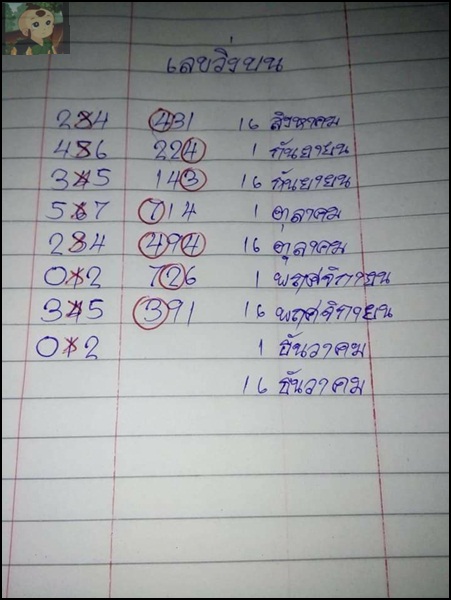 เลขวิ่งบน
284 431 16 สิงหาคม
486 224 1 กันยายน
345 143 16 กันยายน
567 714 1 ตุลาคม
284 494 16 ตุลาคม
012 726 1 พฤศจิกายน
345 391 16 พฤศจิกายน
012 1 ธันวาคม
16 ธันวาคม